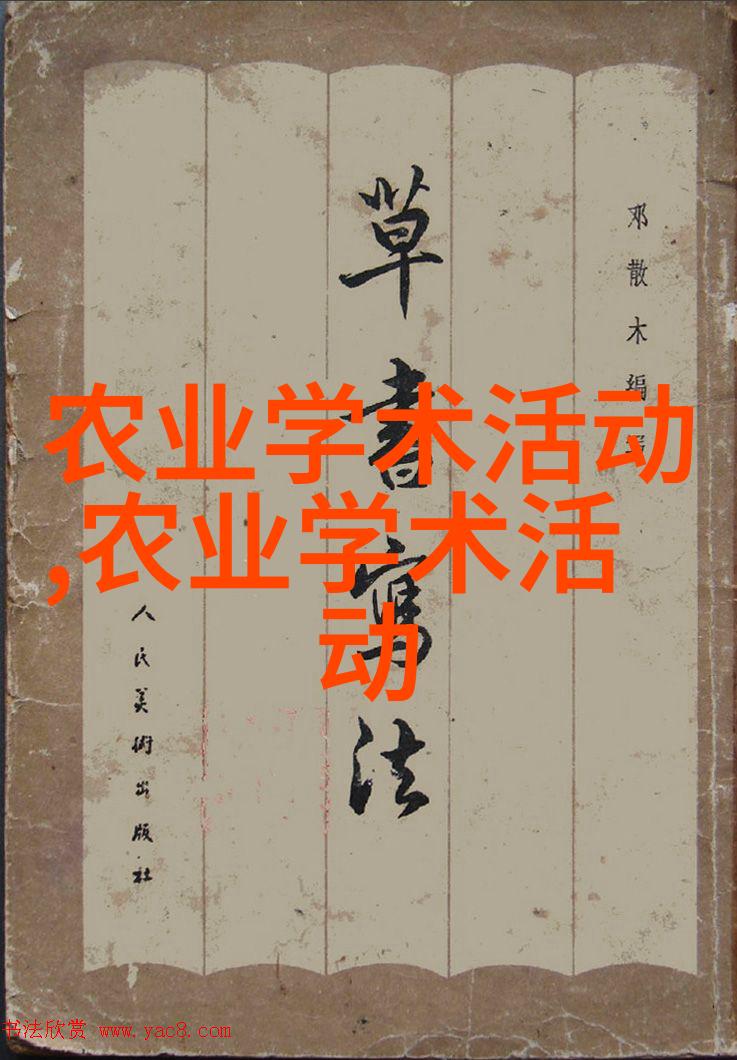 邓散木編
草書寫法
农业学术活动
,农业学术活
动
人民美術出版社
书法欣赏 www.yac8.com